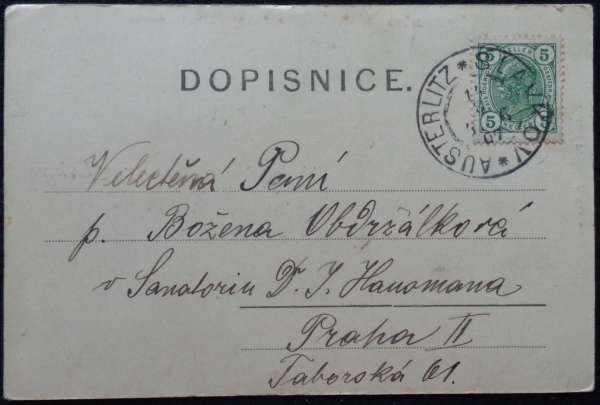 DOPISNICE.
5 HELLER 5
5
* AUSTERLITZ * SLAVKOV
Velectěná Paní
p. Božena Obdržálková
v Sanatoriu Dr. J. Hausmana
Praha II
Táborská 61.